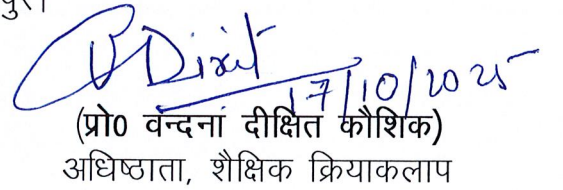 पुर।
Dixit
17/10/2025
(प्रो0 वन्दना दीक्षित कौशिक)
अधिष्ठाता, शैक्षिक क्रियाकलाप